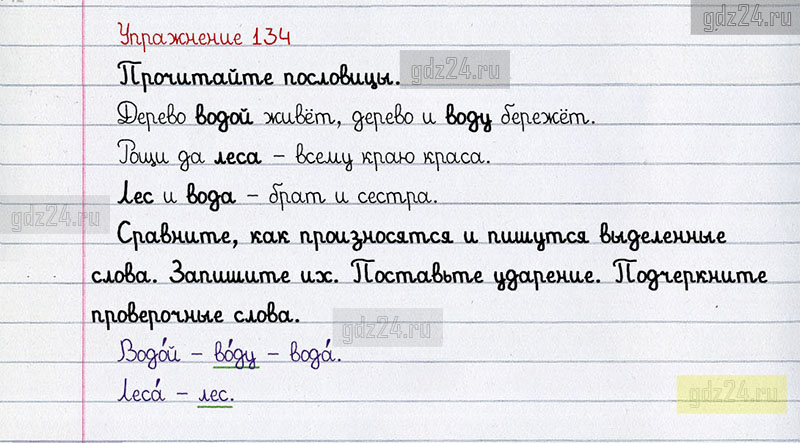 gdz24.ru
Упражнение 134
Прочитайте пословицы.
gdz24.ru
Дерево водой живёт, дерево и воду бережёт.
Рощи да леса – всему краю краса.
Лес и вода – брат и сестра.
gdz24.ru
Сравните, как произносятся и пишутся выделенные
слова. Запишите их. Поставьте ударение. Подчеркните
проверочные слова.
gdz24.ru
Водо́й – во́ду – вода́.
Леса́ – лес.
gdz24.ru